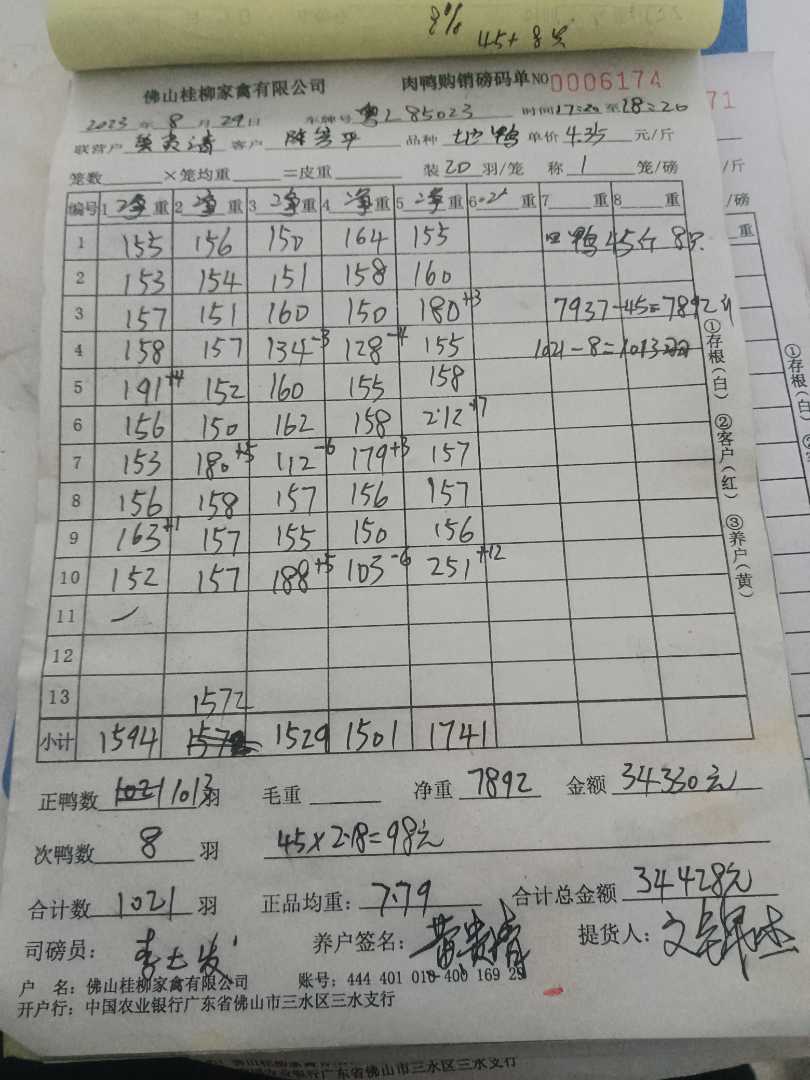 8%
45斤 8只
佛山桂柳家禽有限公司 肉鸭购销磅码单 NO0006174
71
2023年8月29日 车牌号 粤L85023 时间17:20至18:20
联营户 黄贵清 客户 品种 边鸭 单价4.35元/斤
笼数 ×笼均重 =皮重 装20羽/笼 称1笼/磅
编号 1净重 2净重 3净重 4净重 5净重 6 重 7 重 8 重
1 155 156 150 164 155 回鸭45斤8只
2 153 154 151 158 160
3 157 151 160 150 180+3 7937-45=7892斤
4 158 157 134-3 128-4 155 1021-8=1013
5 191+4 152 160 155 158
6 156 150 162 158 212+7
7 153 180+5 112-6 179+3 157
8 156 158 157 156 157
9 163+1 157 155 150 156
10 152 157 188+5 103-6 251+12
11
12
13 1572
小计 1594 1572 1529 1501 1741
正鸭数 1021 1013羽 毛重 净重 7892 金额 34330元
次鸭数 8 羽 45×2.18=98元
合计数 1021 羽 正品均重: 7.79 合计总金额 34428元
司磅员: 养户签名: 黄贵清 提货人:
户 名: 佛山桂柳家禽有限公司 账号: 444 401 010 400 169 29
开户行: 中国农业银行广东省佛山市三水区三水支行
①存根(白) ②客户(红) ③养户(黄)
/斤
/磅
重
①存根(白)
佛山桂柳家禽有限公司
中国农业银行广东省佛山市三水区三水支行